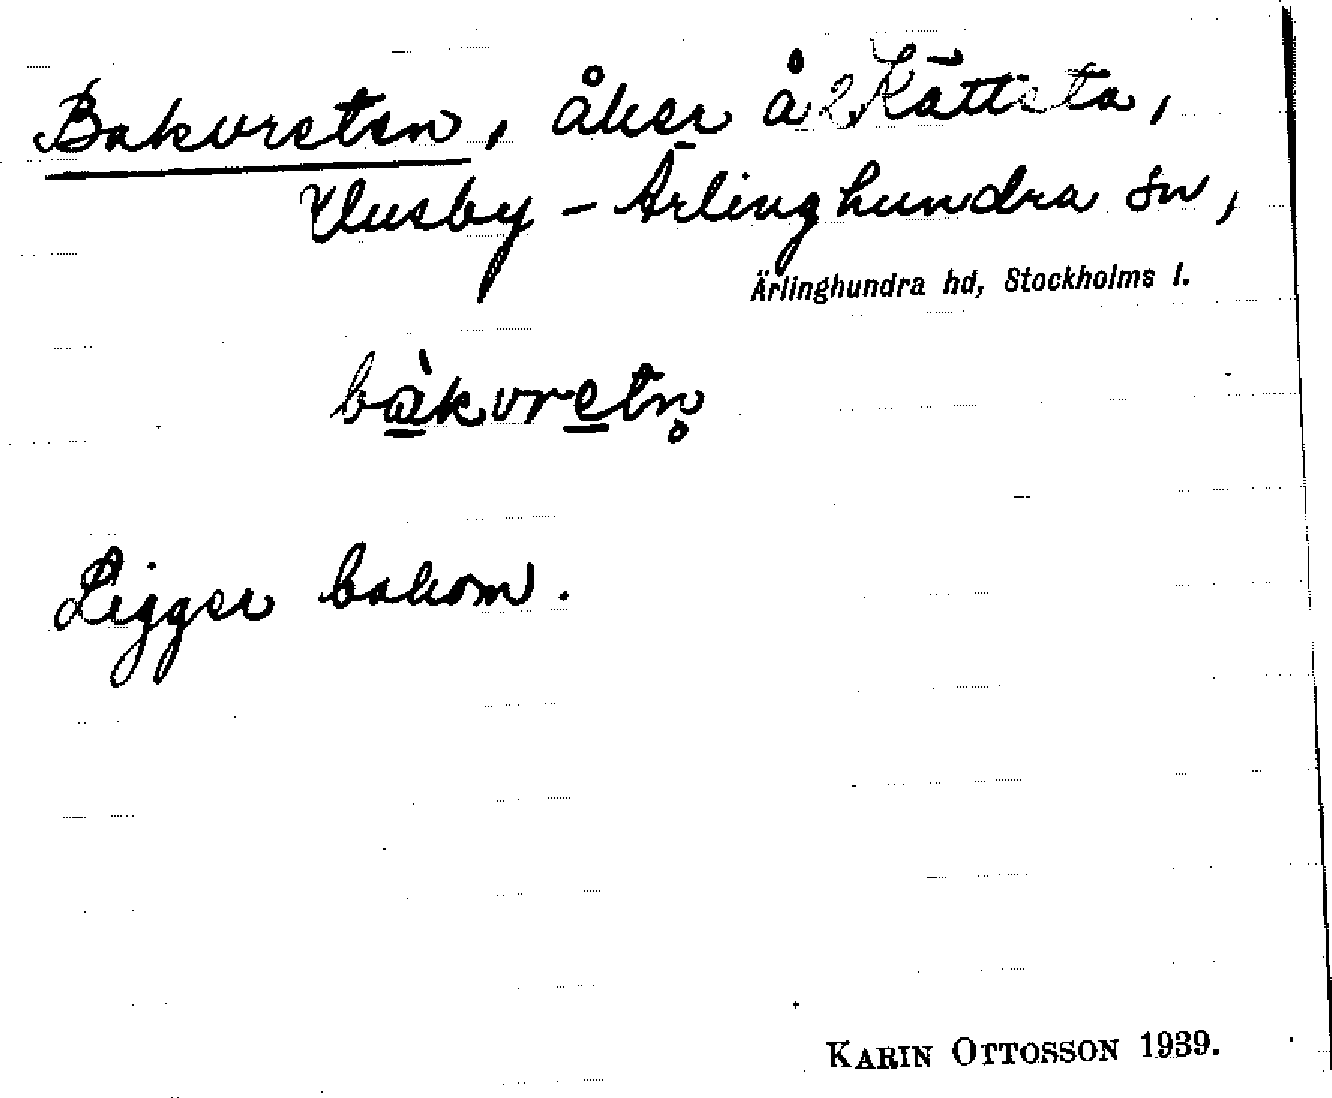 Bakvreten, åker å 2 Kättsta,
Husby-Ärlinghundra sn,
Ärlinghundra hd, Stockholms l.
bàkvretn̥
Ligger bakom.
KARIN OTTOSSON 1939.